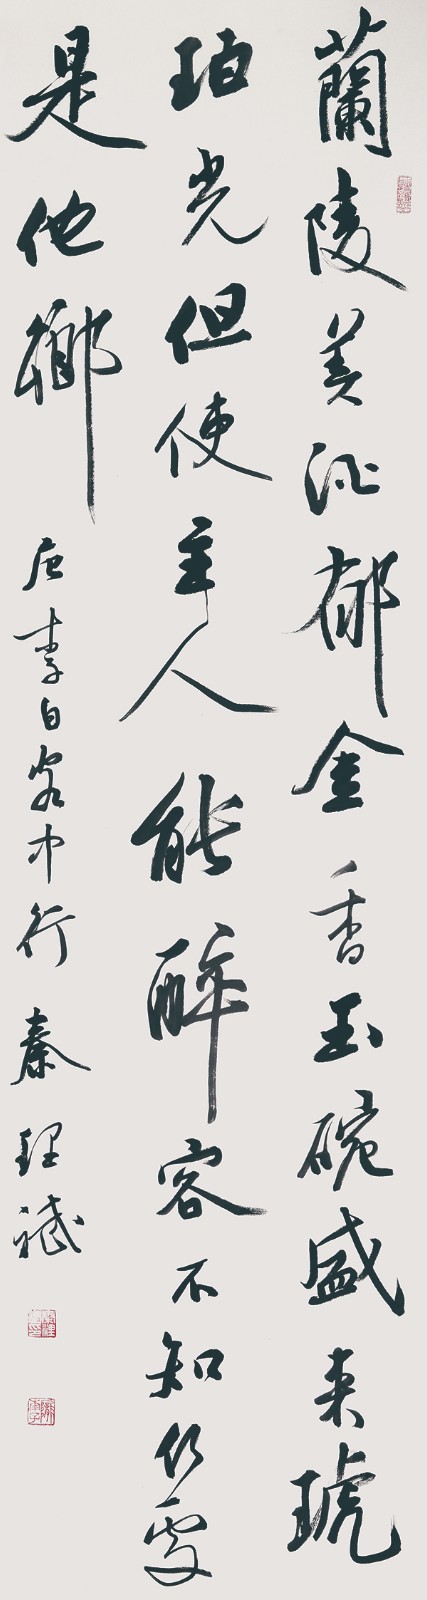 蘭陵美酒郁金香玉碗盛来琥
珀光但使主人能醉客不知何處
是他鄉 唐李白客中行 秦理斌